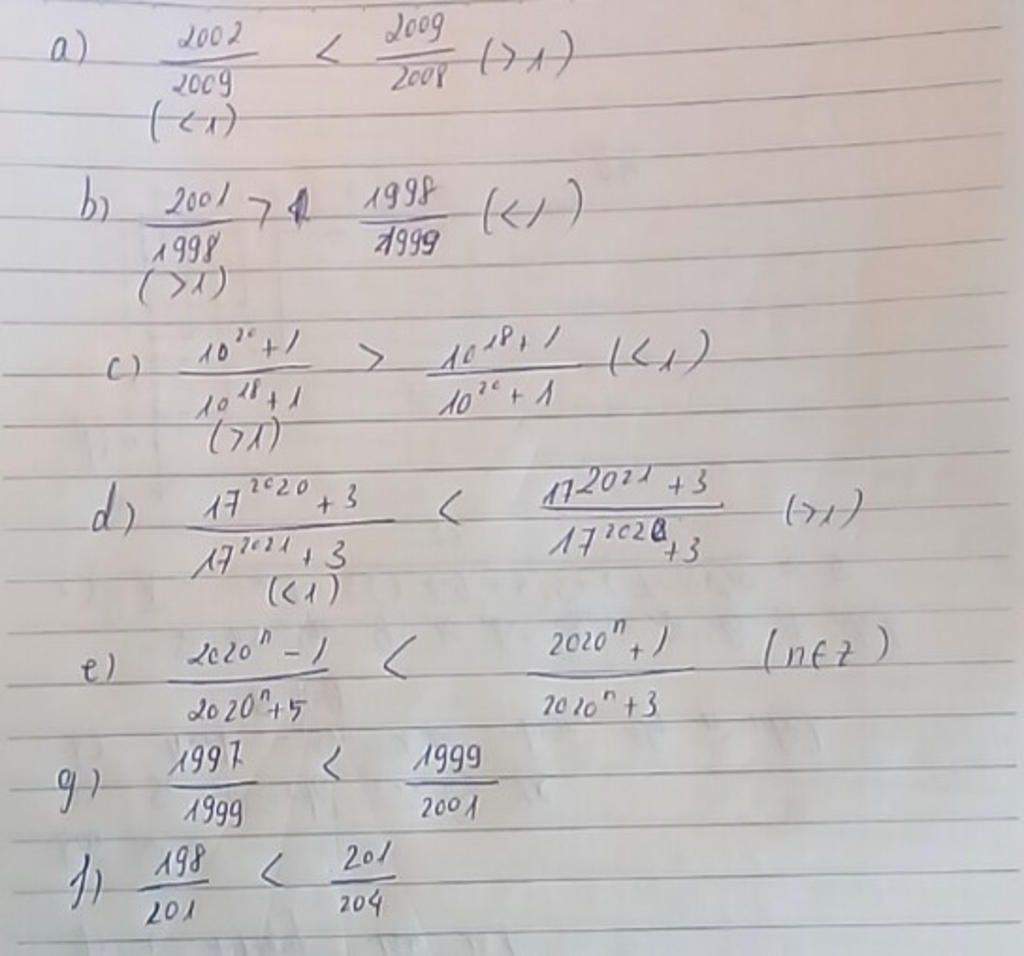 a) 2002/2009 < 2009/2008 (>1)
(<1)
b) 2001/1998 > 1998/1999 (<1)
(>1)
c) 10²⁰+1/10¹⁸+1 > 10¹⁸+1/10²⁰+1 (<1)
(>1)
d) 17²⁰²⁰+3/17²⁰²¹+3 < 17²⁰²¹+3/17²⁰²⁰+3 (>1)
(<1)
e) 2020ⁿ-1/2020ⁿ+5 < 2020ⁿ+1/2020ⁿ+3 (n∈z)
g) 1997/1999 < 1999/2001
f) 198/201 < 201/204